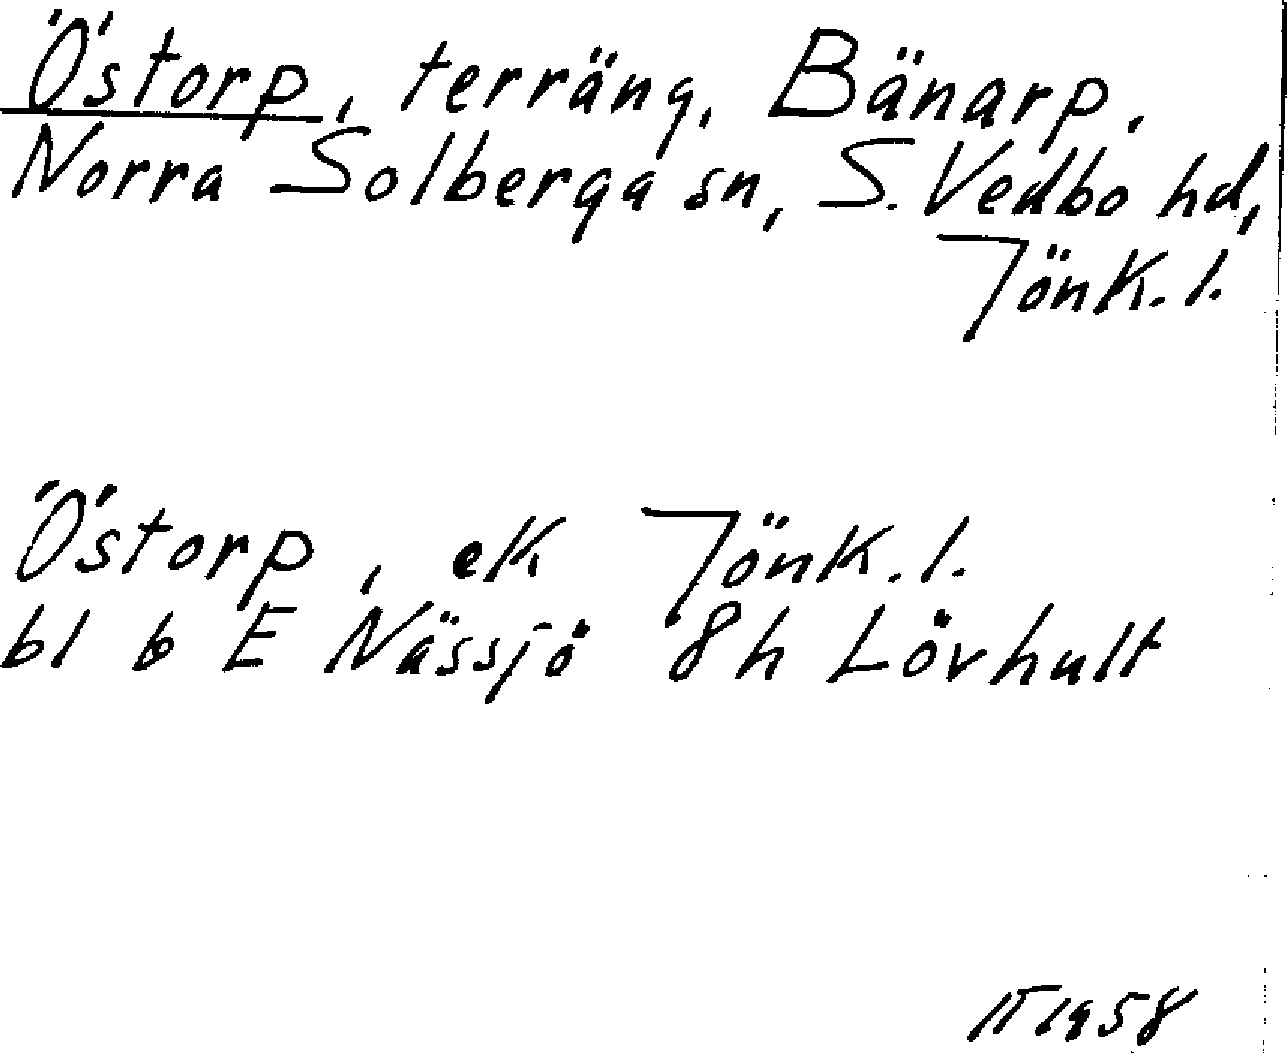 Östorp, terräng, Bänarp,
Norra Solberga sn, S. Vedbo hd,
Jönk. l.
Östorp, ek Jönk. l.
bl b E Nässjö 8h Lövhult
1958